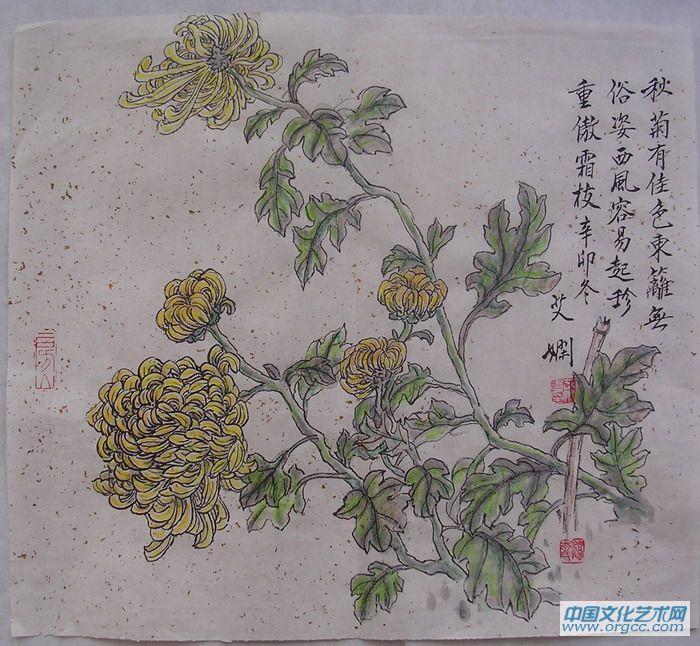 秋菊有佳色東籬無
俗姿西風容易起珍
重傲霜枝辛卯冬
艾嫻
中国文化艺术网
www.orgcc.com